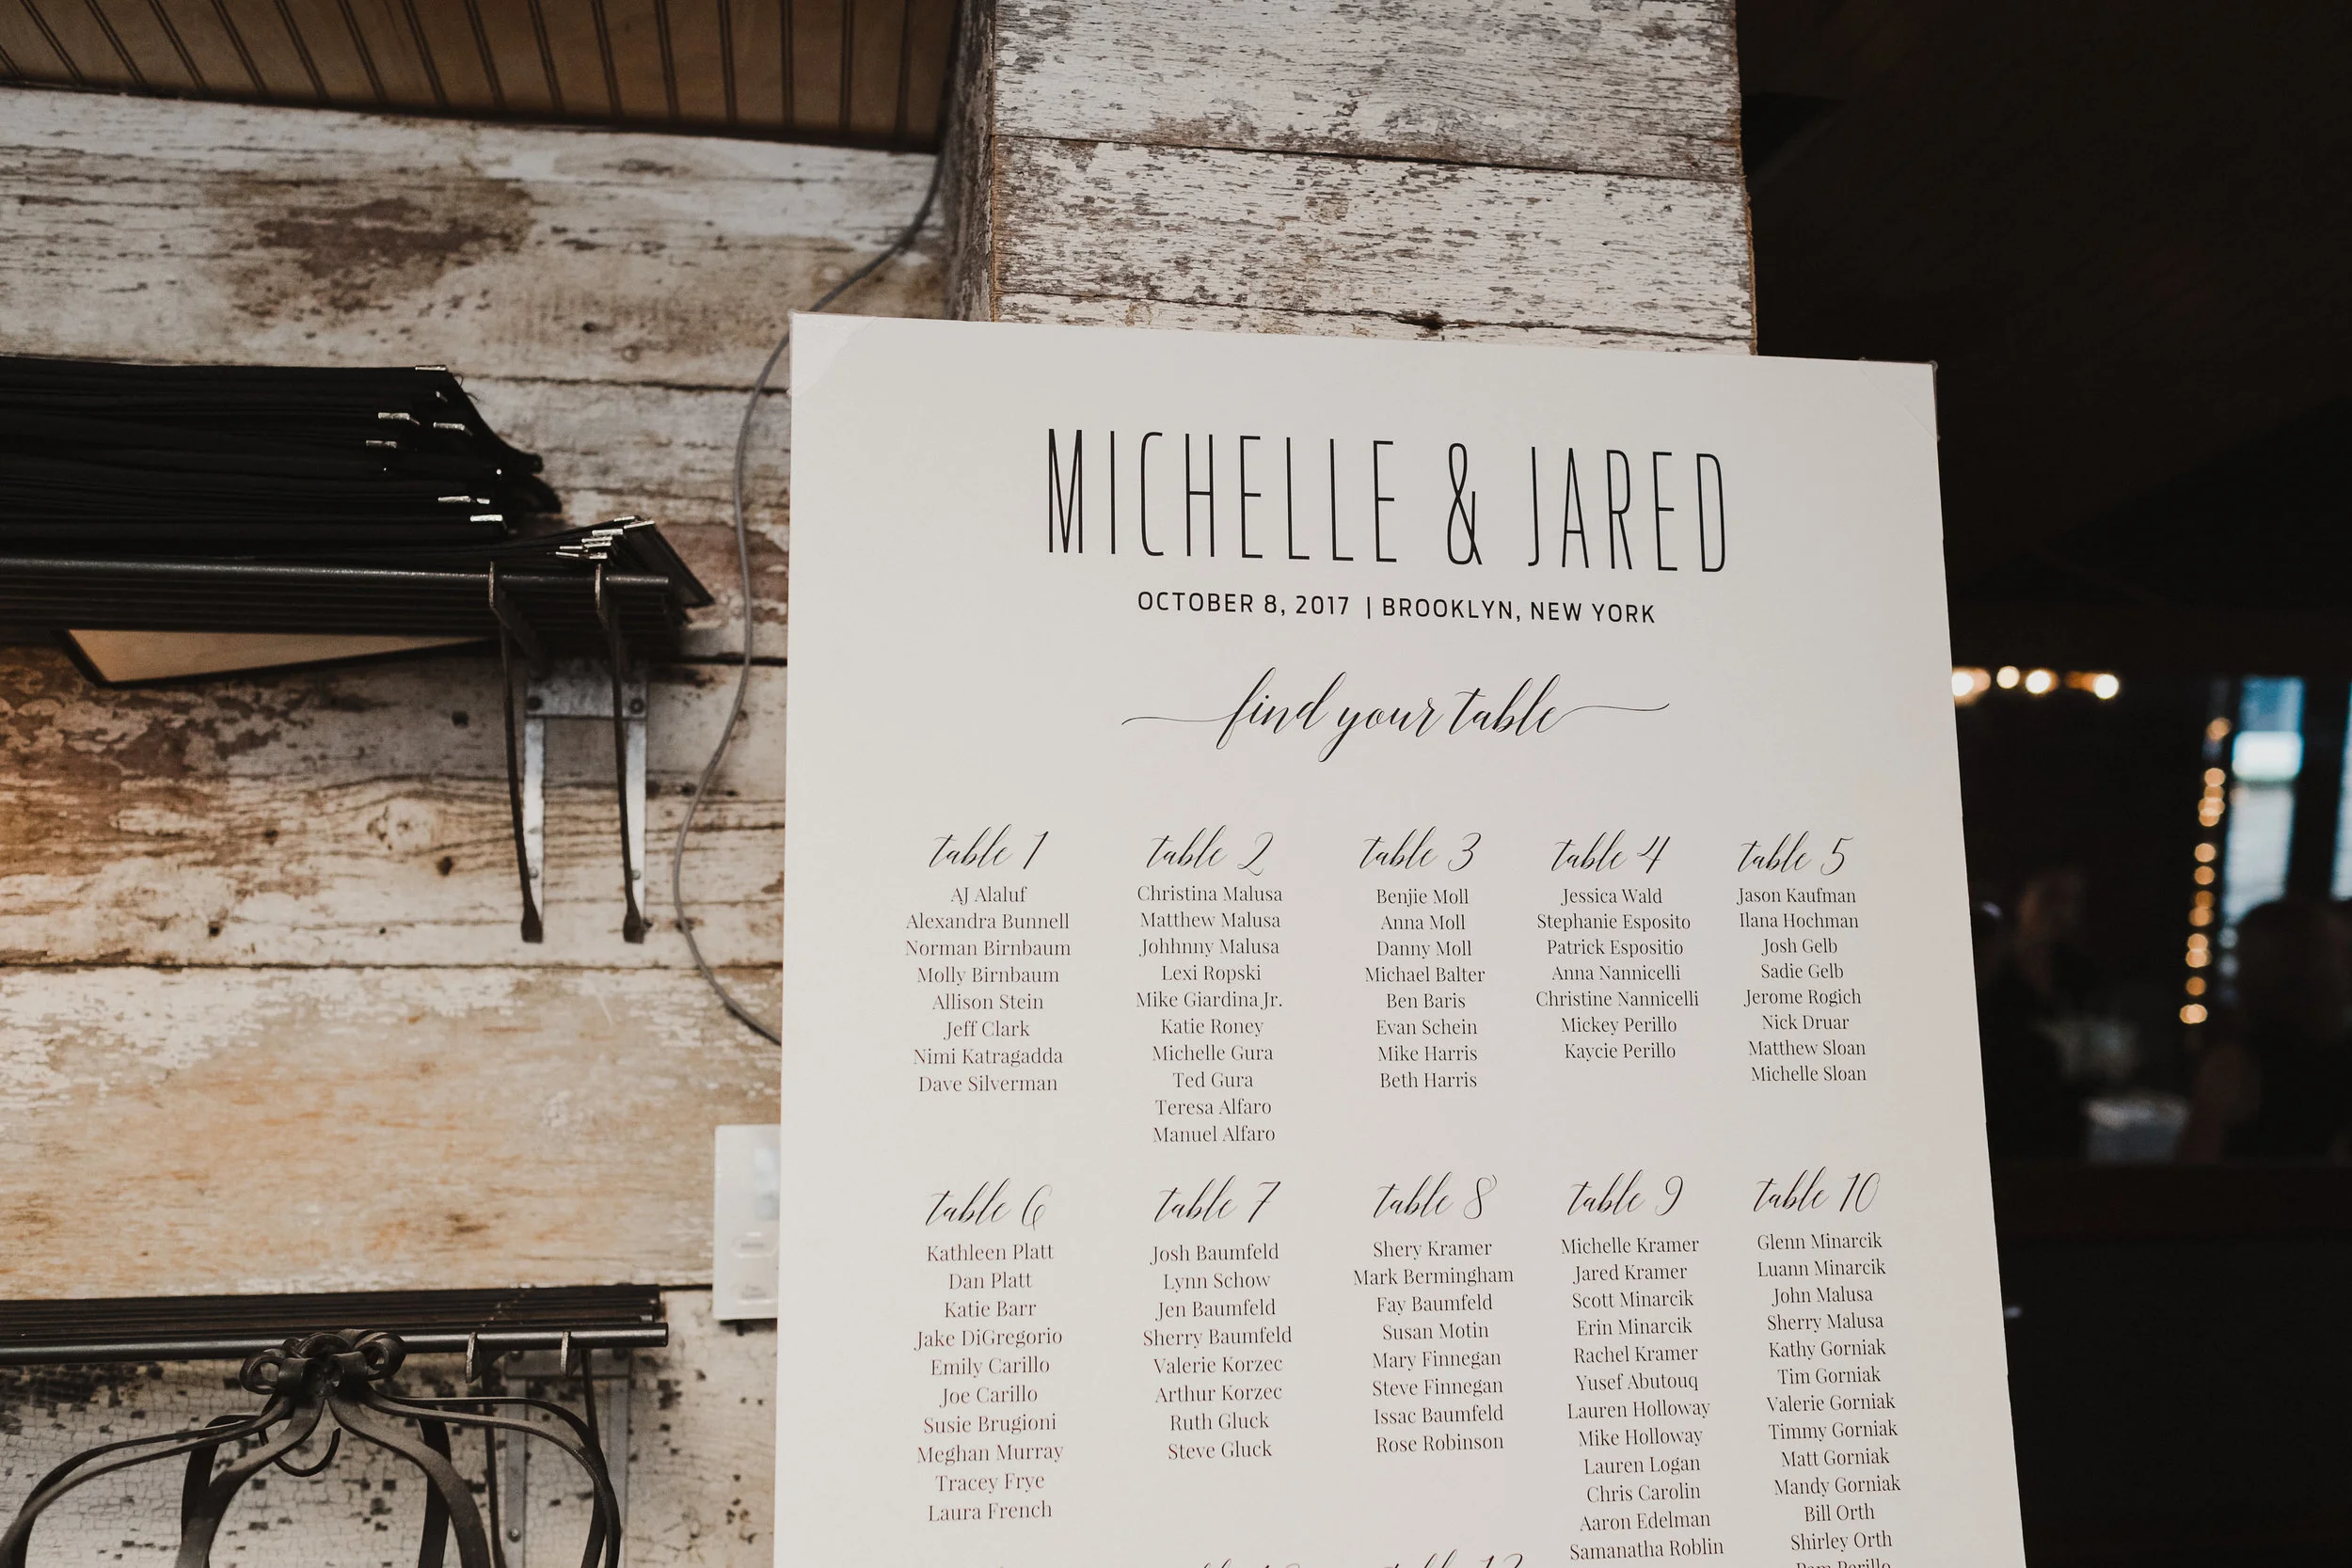 MICHELLE & JARED
OCTOBER 8, 2017 | BROOKLYN, NEW YORK
find your table
table 1
AJ Alaluf
Alexandra Bunnell
Norman Birnbaum
Molly Birnbaum
Allison Stein
Jeff Clark
Nimi Katragadda
Dave Silverman
table 2
Christina Malusa
Matthew Malusa
Johhnny Malusa
Lexi Ropski
Mike Giardina Jr.
Katie Roney
Michelle Gura
Ted Gura
Teresa Alfaro
Manuel Alfaro
table 3
Benjie Moll
Anna Moll
Danny Moll
Michael Balter
Ben Baris
Evan Schein
Mike Harris
Beth Harris
table 4
Jessica Wald
Stephanie Esposito
Patrick Espositio
Anna Nannicelli
Christine Nannicelli
Mickey Perillo
Kaycie Perillo
table 5
Jason Kaufman
Ilana Hochman
Josh Gelb
Sadie Gelb
Jerome Rogich
Nick Druar
Matthew Sloan
Michelle Sloan
table 6
Kathleen Platt
Dan Platt
Katie Barr
Jake DiGregorio
Emily Carillo
Joe Carillo
Susie Brugioni
Meghan Murray
Tracey Frye
Laura French
table 7
Josh Baumfeld
Lynn Schow
Jen Baumfeld
Sherry Baumfeld
Valerie Korzec
Arthur Korzec
Ruth Gluck
Steve Gluck
table 8
Shery Kramer
Mark Bermingham
Fay Baumfeld
Susan Motin
Mary Finnegan
Steve Finnegan
Issac Baumfeld
Rose Robinson
table 9
Michelle Kramer
Jared Kramer
Scott Minarcik
Erin Minarcik
Rachel Kramer
Yusef Abutouq
Lauren Holloway
Mike Holloway
Lauren Logan
Chris Carolin
Aaron Edelman
Samanatha Roblin
table 10
Glenn Minarcik
Luann Minarcik
John Malusa
Sherry Malusa
Kathy Gorniak
Tim Gorniak
Valerie Gorniak
Timmy Gorniak
Matt Gorniak
Mandy Gorniak
Bill Orth
Shirley Orth